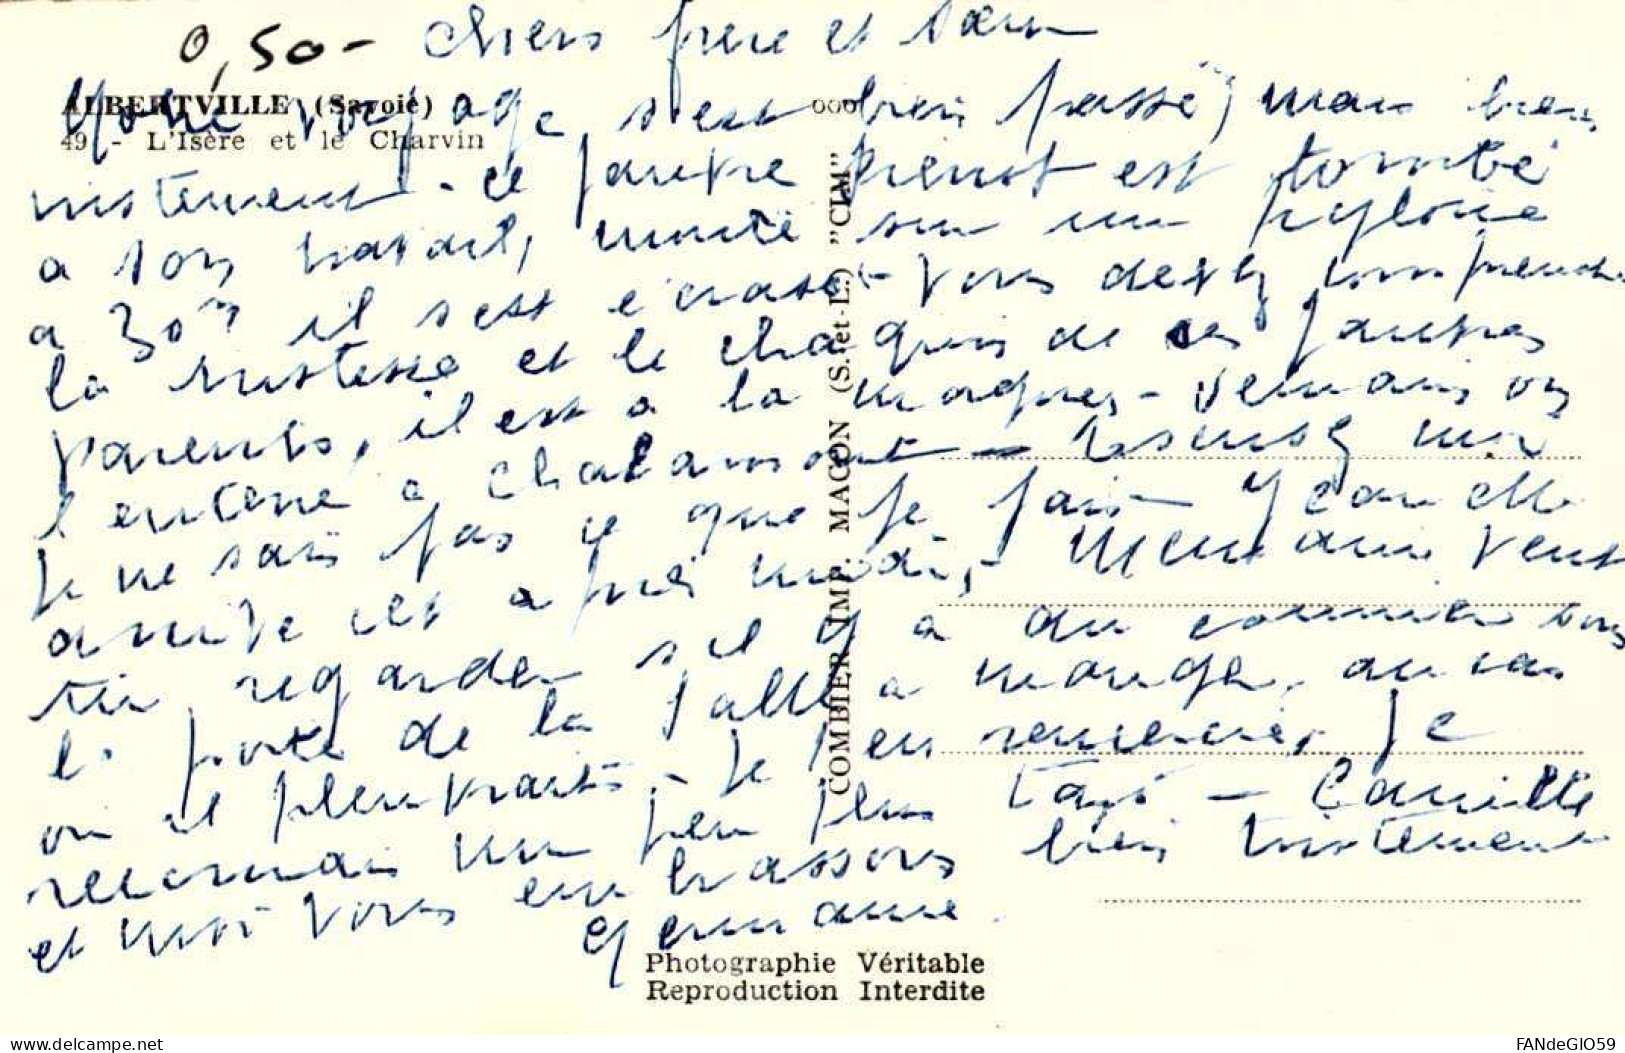 0,50 - Chers frere et sœur
ALBERTVILLE (Savoie)
49 - L'Isère et le Charvin
Notre voyage s'est bien passé, mais bien
tristement - ce pauvre est tombé
a son travail, monté sur un pylone
a 30m il s'est écrasé - Vous devez comprendre
la tristesse et le chagrin de ses pauvres
parents, il est a la - Demain on
l'enterre a Chalamont - Excusez moi
je ne sais pas ce que je fais
arrive cet apres midi -
regarder s'il y a du courrier sous
la porte de la salle a manger, au cas
ou il pleuvrait - Je t'en remercie, je
un peu plus tard - Camille
et moi vous embrassons bien tristement
Germaine.
COMBIER IMP. MACON (S.-et-L.) "CIM"
Photographie Véritable
Reproduction Interdite
delcampe.net
FANdeGIO59